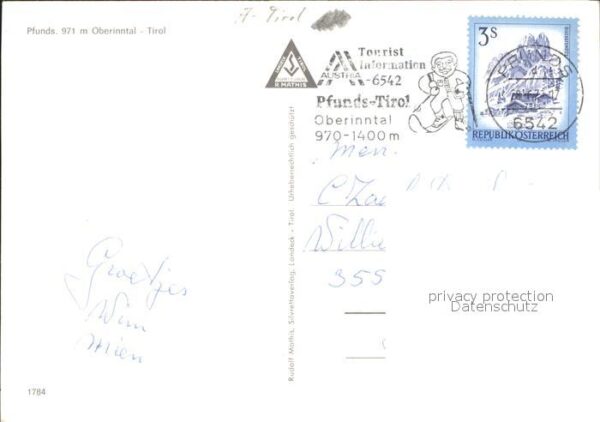 A-Tirol
Pfunds. 971 m Oberinntal - Tirol
R MATHIS
AUSTRIA
Tourist
Information
-6542
Pfunds-Tirol
Oberinntal
970-1400m
3S
PFUNDS
6542
REPUBLIK ÖSTERREICH
Men.
Willie
355
Groetjes
Wim
Mien
Rudolf Mathis, Silvrettaverlag, Landeck - Tirol. Urheberrechtlich geschützt!
privacy protection
Datenschutz
1784